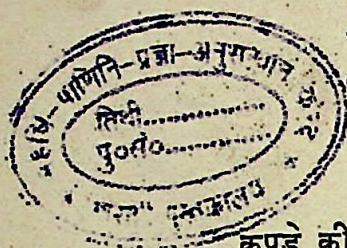 महर्षि-पाणिनि-प्रज्ञा-अनुसन्धान केन्द्र
तिथी..............
पु०सं०..............
पुस्तकालय
कपड़े की